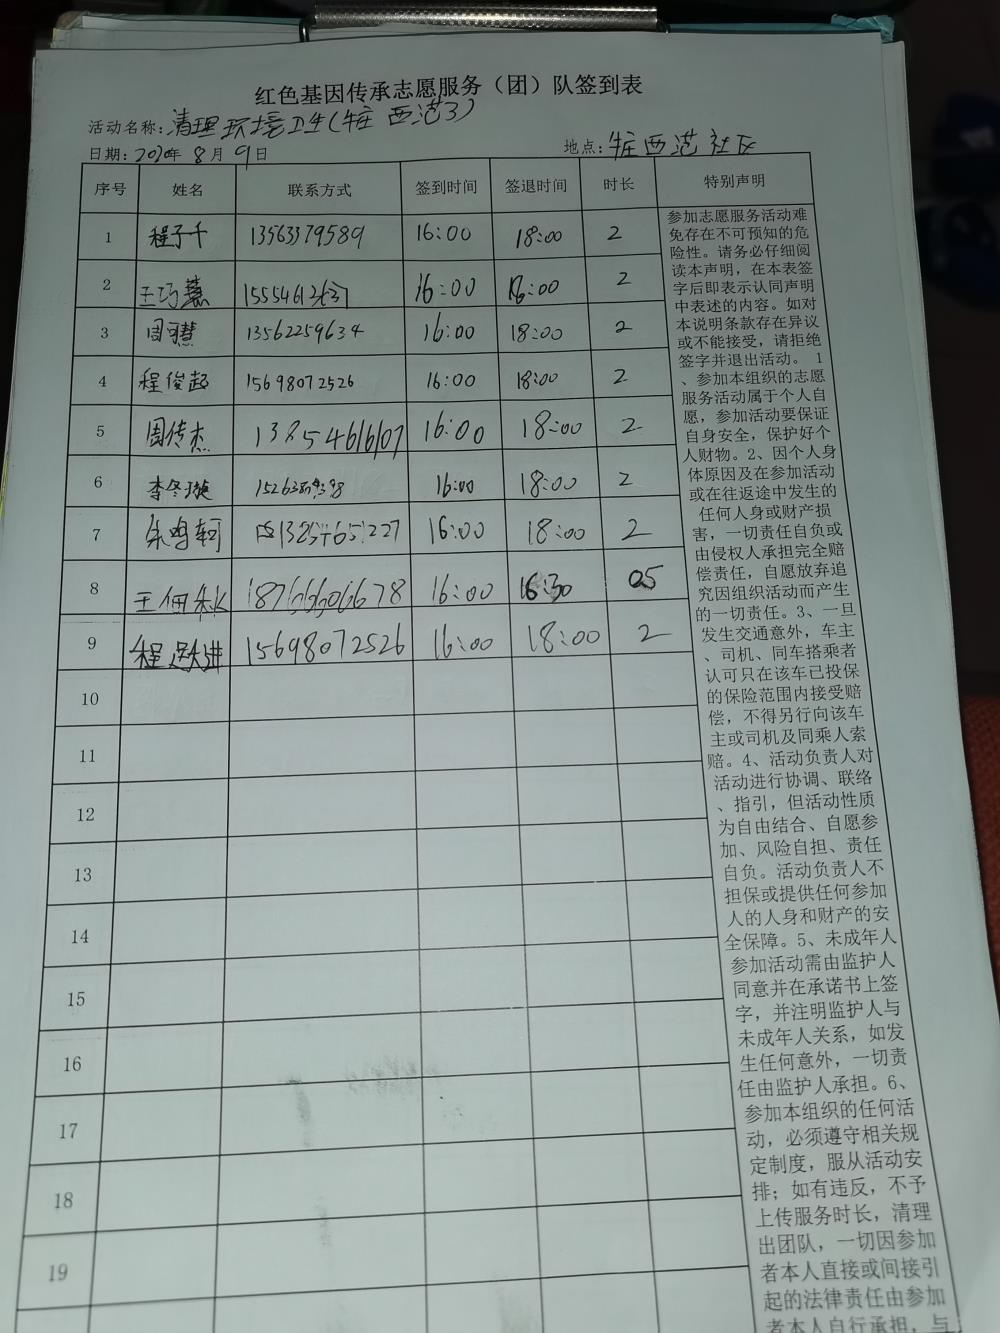 红色基因传承志愿服务（团）队签到表
活动名称：清理环境卫生(牟西范3)
日期：2020年 8月 9日 地点：牟西范社区
序号 姓名 联系方式 签到时间 签退时间 时长 特别声明
1 程子千 13563379589 16:00 18:00 2
2 王巧慧 16:00 18:00 2
3 周可慧 13562259634 16:00 18:00 2
4 程俊起 15698072526 16:00 18:00 2
5 周传杰 13854616107 16:00 18:00 2
6 李冬璇 16:00 18:00 2
7 朱鸣轲 16:00 18:00 2
8 王佃 18766606678 16:00 16:30 0.5
9 程跃进 15698072526 16:00 18:00 2
10
11
12
13
14
15
16
17
18
19
参加志愿服务活动难
免存在不可预知的危
险性。请务必仔细阅
读本声明，在本表签
字后即表示认同声明
中表述的内容。如对
本说明条款存在异议
或不能接受，请拒绝
签字并退出活动。 1
、参加本组织的志愿
服务活动属于个人自
愿，参加活动要保证
自身安全，保护好个
人财物。2、因个人身
体原因及在参加活动
或在往返途中发生的
任何人身或财产损
害，一切责任自负或
由侵权人承担完全赔
偿责任，自愿放弃追
究因组织活动而产生
的一切责任。3、一旦
发生交通意外，车主
、司机、同车搭乘者
认可只在该车已投保
的保险范围内接受赔
偿，不得另行向该车
主或司机及同乘人索
赔。4、活动负责人对
活动进行协调、联络
、指引，但活动性质
为自由结合、自愿参
加、风险自担、责任
自负。活动负责人不
担保或提供任何参加
人的人身和财产的安
全保障。5、未成年人
参加活动需由监护人
同意并在承诺书上签
字，并注明监护人与
未成年人关系，如发
生任何意外，一切责
任由监护人承担。6、
参加本组织的任何活
动，必须遵守相关规
定制度，服从活动安
排；如有违反，不予
上传服务时长，清理
出团队，一切因参加
者本人直接或间接引
起的法律责任由参加
者本人自行承担，与